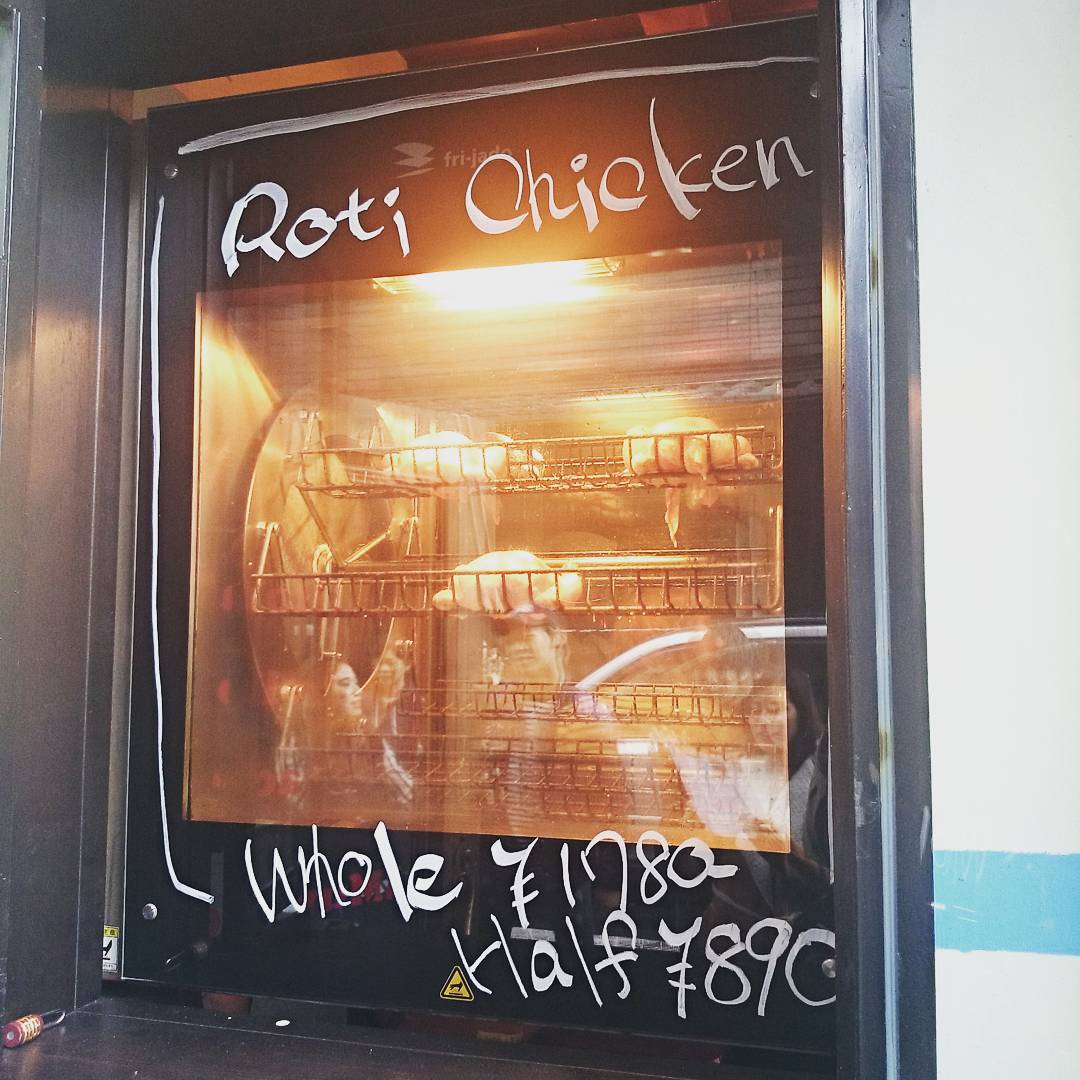 fri-jado
Roti Chicken
Whole ¥1780
Half ¥890